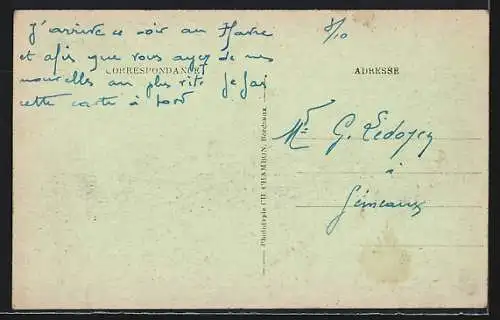 J'arrive ce soir au Havre
et afin que vous ayez de mes
CORRESPONDANCE
nouvelles au plus vite je fais
cette carte à bord
8/10
ADRESSE
Mr G. Ledoyen
à
Gémeaux
Phototypie CH. CHAMBON, Bordeaux